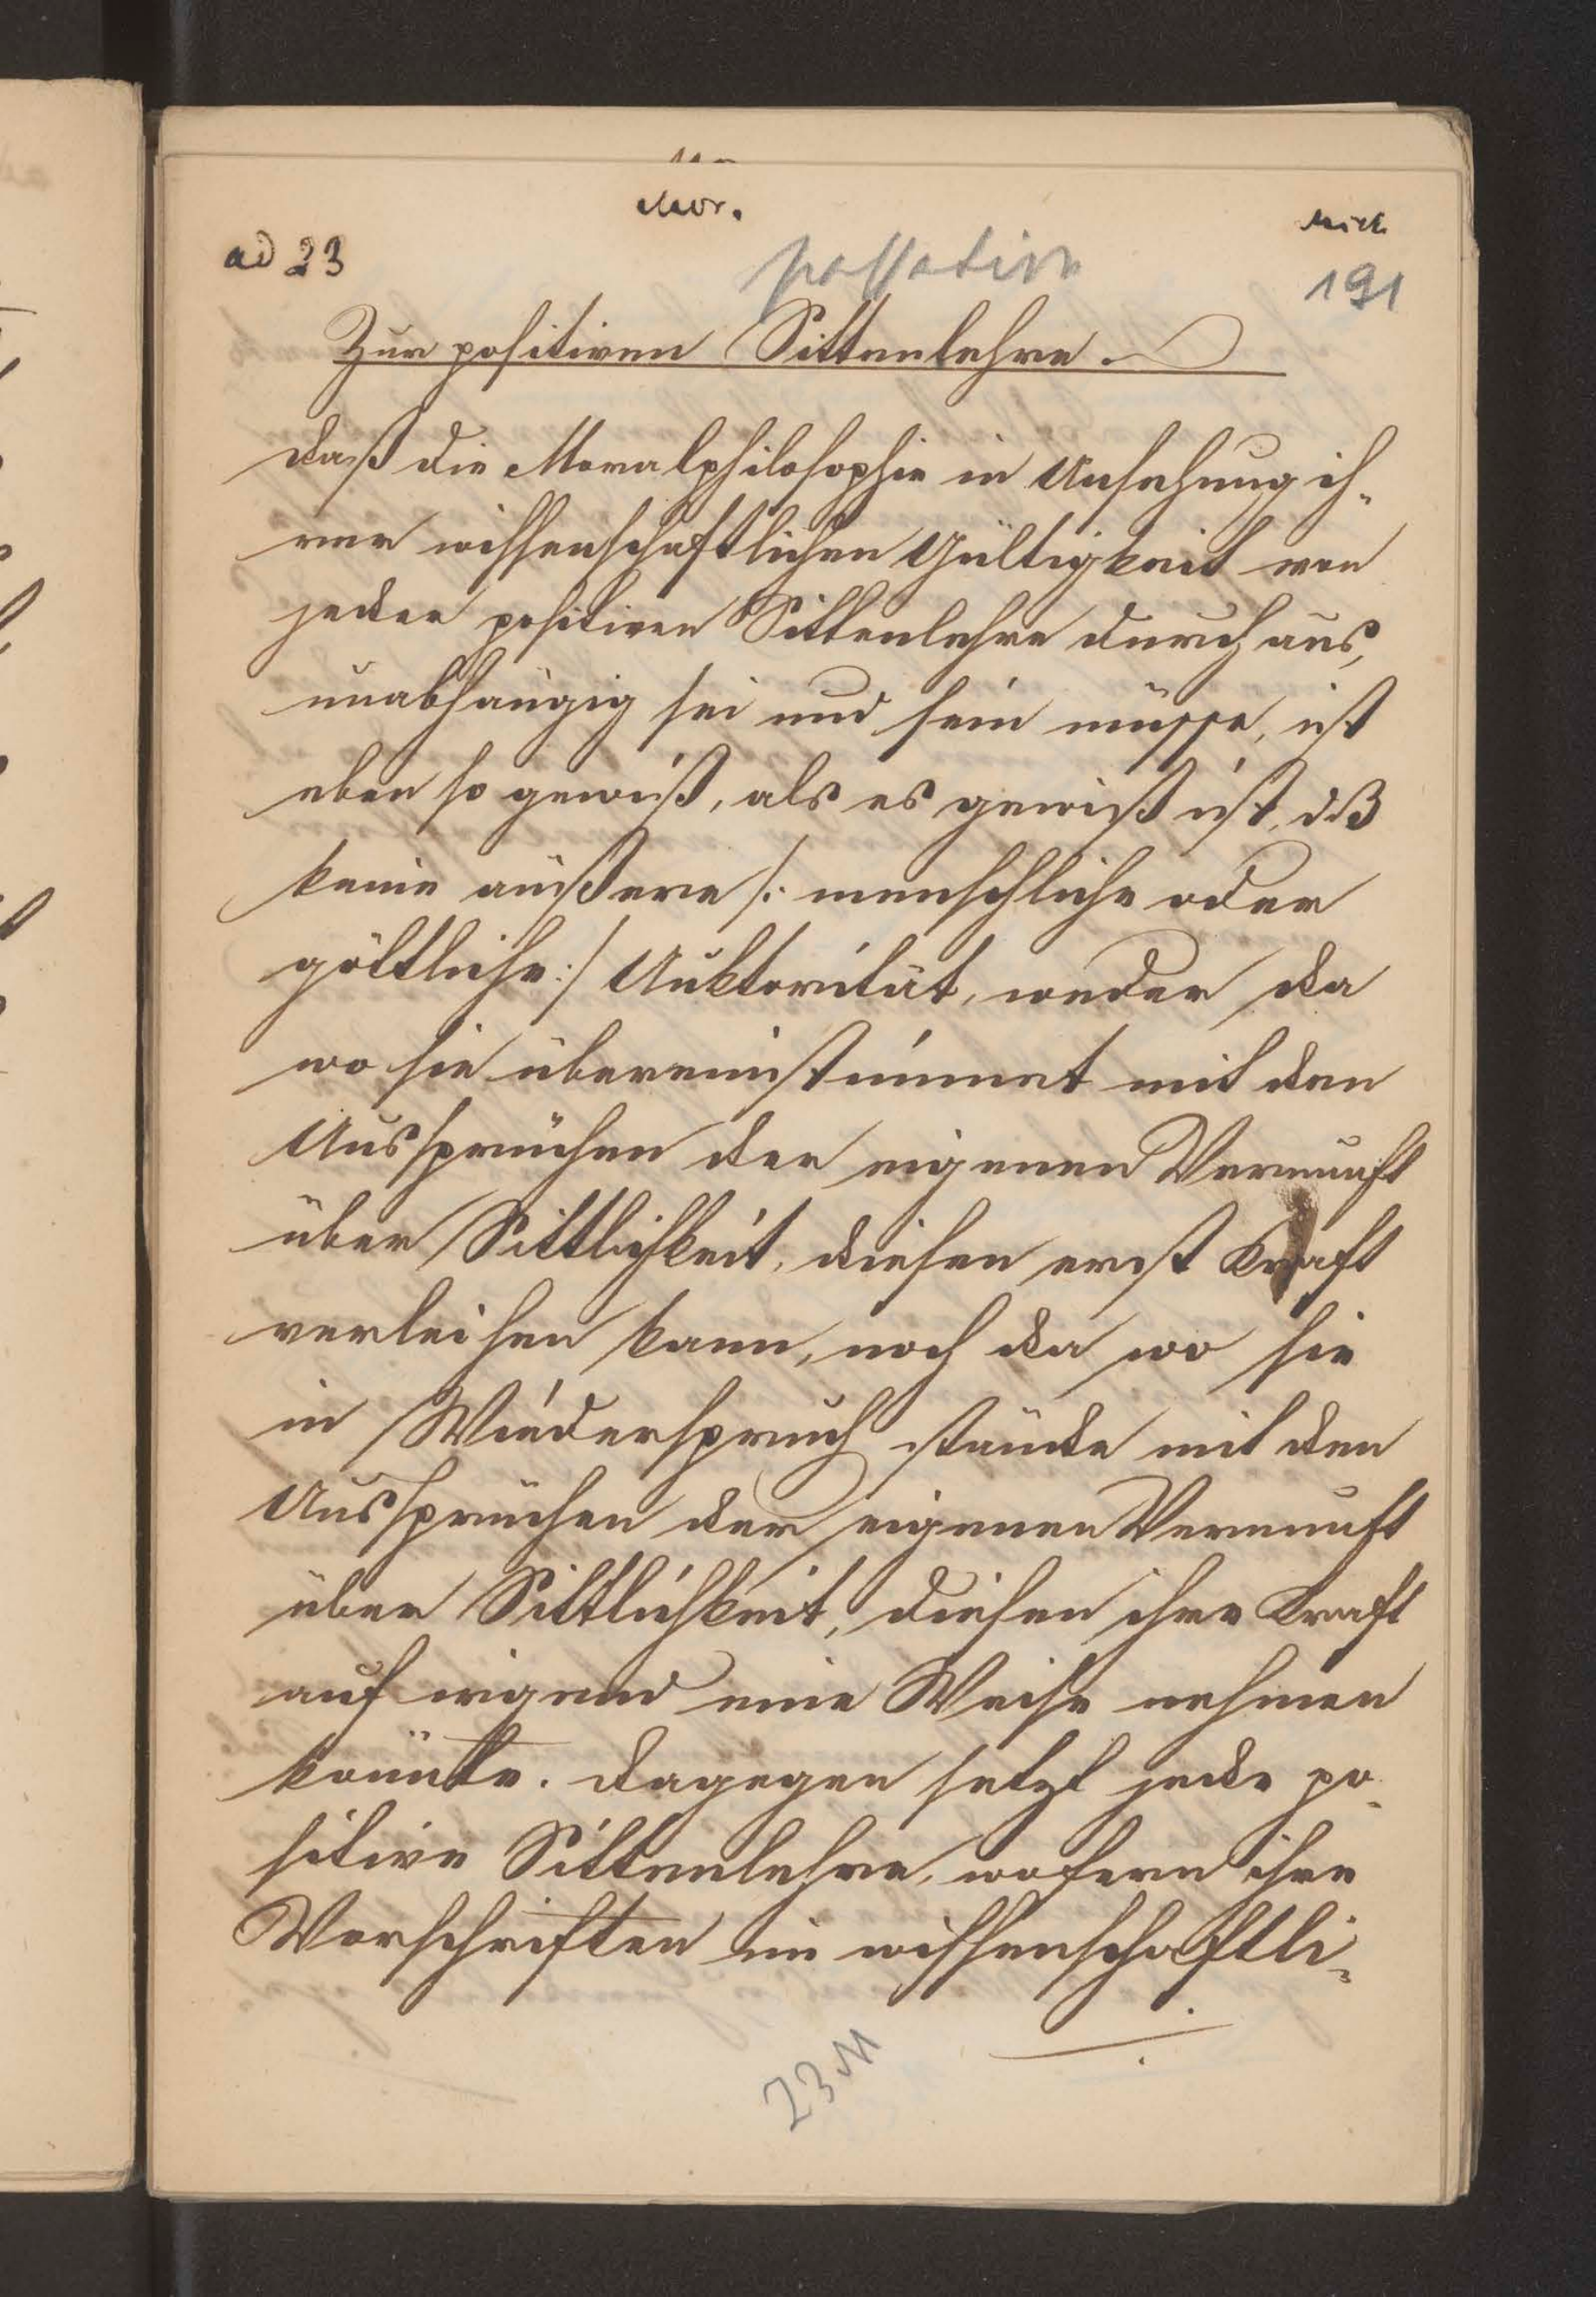 Mor.
ad 23
passatim
191
Zur positiven Sittenlehre.
Daß die Moralphilosophie in Ansehung ih-
rer wissenschaftlichen Gültigkeit von
jeder positiven Sittenlehre durchaus,
unabhängig sei und sein müsse, ist
eben so gewiß, als es gewiß ist, dß
keine äußere /: menschliche oder
göttliche :/ Auktorität, weder da
wo sie übereinstimmt mit den
Aussprüchen der eigenen Vernunft
über Sittlichkeit, diesen erst Kraft
verleihen kann, noch da wo sie
in Wiederspruch stände mit den
Aussprüchen der eigenen Vernunft
über Sittlichkeit, diesen ihre Kraft
auf irgend eine Weise nehmen
könnte. Dagegen setzt jede po-
sitive Sittenlehre, wofern ihre
Vorschriften im wissenschaftli-
23 M